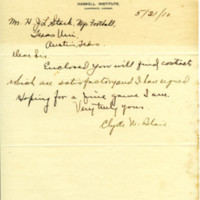 HASKELL INSTITUTE,
LAWRENCE, KANSAS.
5/21/10
Mr. H. J. L. Stark, Mgr. Football,
Texas Uni.
Austin, Texas
Dear Sir,
Enclosed you will find contract
which are satisfactory and I have signed
Hoping for a fine game I am.
Very truly yours.
Clyde W. Blair